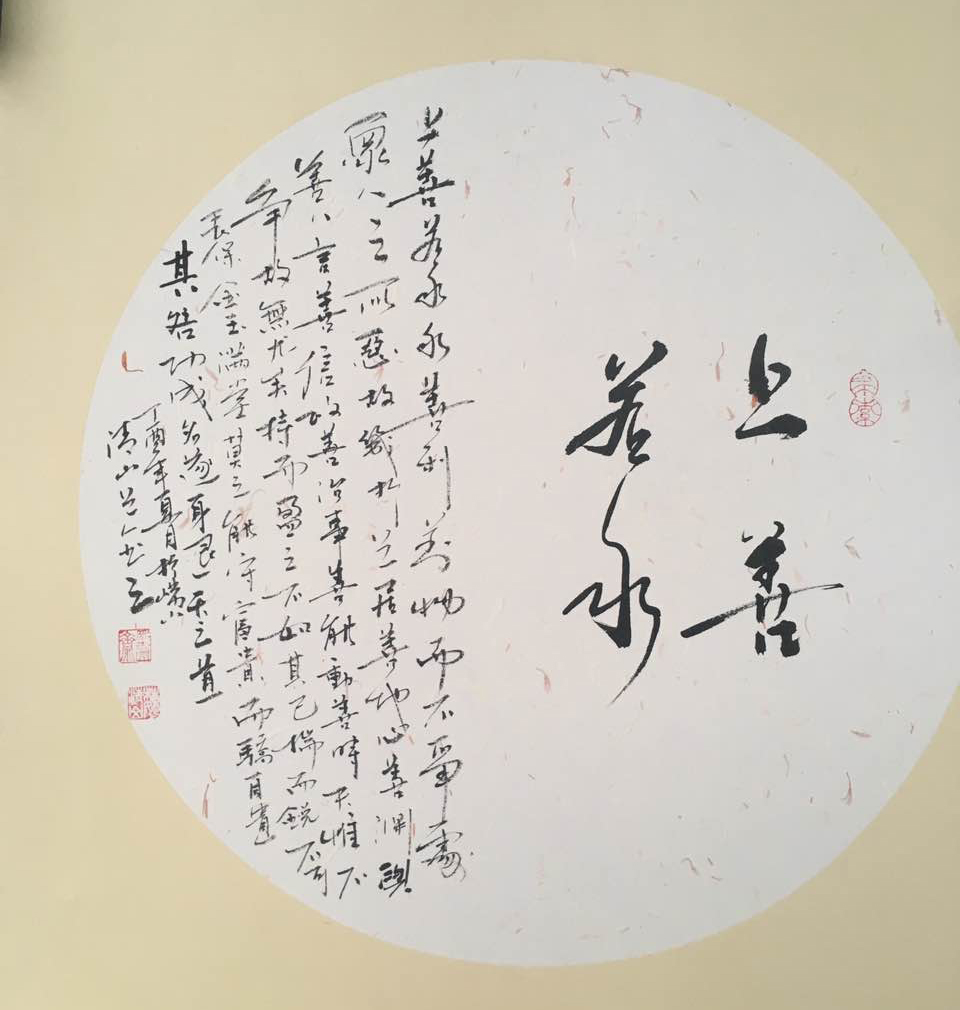 上善
若水
上善若水水善利万物而不爭處
眾人之所惡故幾於道居善地心善淵與
善人言善信政善治事善能動善時夫惟不
爭故無尤矣持而盈之不如其已揣而銳不可
長保金玉滿堂莫之能守富貴而驕自遺
其咎功成名遂身退天之道
丁酉年夏月於
清山道人书之